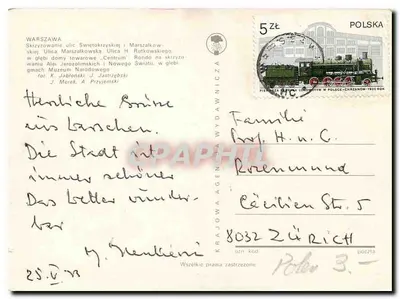 WARSZAWA
Skrzyżowanie ulic Świętokrzyskiej i Marszałkow-
skiej. Ulica Marszałkowska. Ulica H. Rutkowskiego,
w głębi domy towarowe „Centrum". Rondo na skrzyżo-
waniu Alei Jerozolimskich i Nowego Światu, w głębi
gmach Muzeum Narodowego
fot. K. Jabłoński, J. Jastrzębski
J. Morek, A. Przyjemski
5 ZŁ
POLSKA
Herzliche Grüsse
aus Warschau.
Die Stadt ist
immer schöner
Das Wetter wunder-
bar
M.
25. V
KRAJOWA AGENCJA WYDAWNICZA
Familie
Prof. H. u. C.
Rosenmund
Cäcilien Str. 5
8032 ZÜRICH
Polen 3.-
Wszelkie prawa zastrzeżone
poczta
DELCAMPE